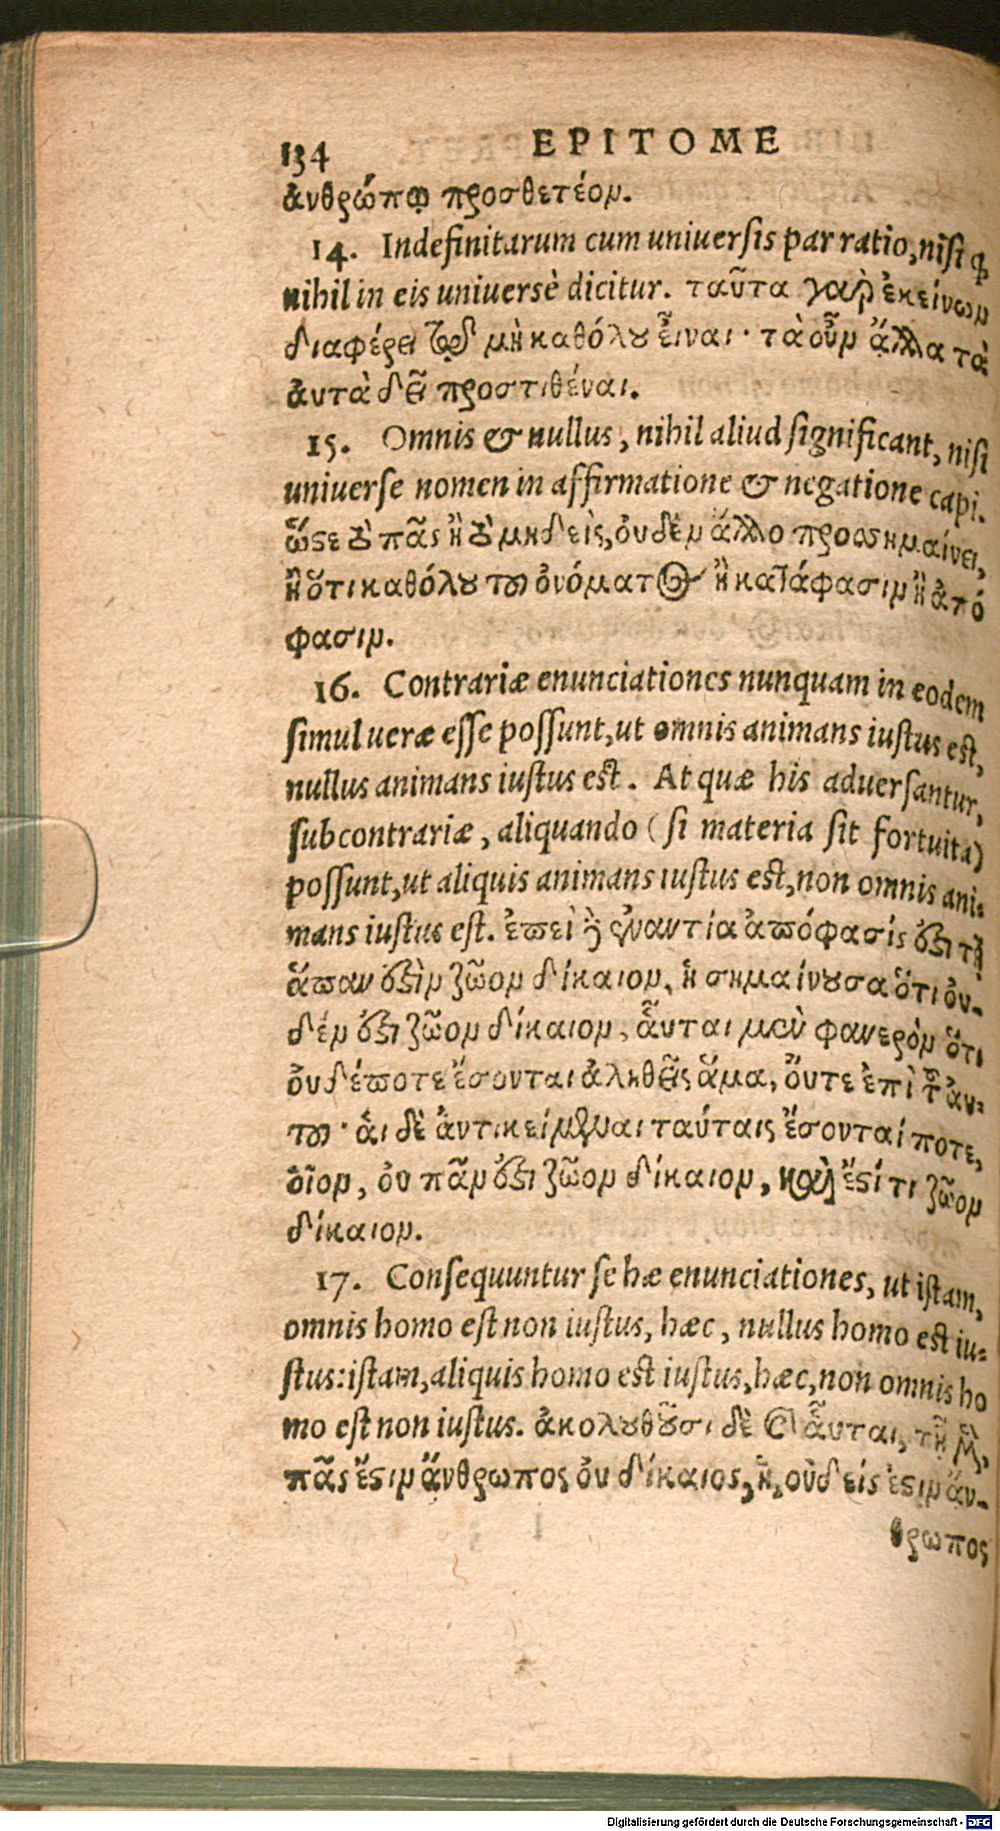 134 EPITOME
ἀνθρώπῳ προσθετέον.
14. Indefinitarum cum uniuersis par ratio, nisi ꝙ
nihil in eis uniuersè dicitur. ταῦτα γὰρ ἐκείνων
διαφέρει τῷ μὴ καθόλου εἶναι· τὰ οὖν ἄλλα τὰ
ἀυτὰ δεῖ προστιθέναι.
15. Omnis & nullus, nihil aliud significant, nisi
uniuerse nomen in affirmatione & negatione capi.
ὥστε ὀυ πᾶς ἢ ὀυ μηδεὶς, ὀυδὲν ἄλλο προσσημαίνει,
ἢ ὅτι καθόλου τοῦ ὀνόματος ἢ κατάφασιν ἢ ἀπό
φασιν.
16. Contrariæ enunciationes nunquam in eodem
simul ueræ esse possunt, ut omnis animans iustus est,
nullus animans iustus est. At quæ his aduersantur,
subcontrariæ, aliquando (si materia sit fortuita)
possunt, ut aliquis animans iustus est, non omnis ani-
mans iustus est. ἐπεὶ ἢ ἐναντία ἀπόφασίς ἐστι τῇ
ἅπαν ἐστὶν ζῶον δίκαιον, ἡ σημαίνουσα ὅτι ὀυ-
δέν ἐστι ζῶον δίκαιον, ἇυται μὲν φανερὸν ὅτι
ὀυδέποτε ἔσονται ἀληθεῖς ἅμα, ὄυτε ἐπὶ τοῦ ἀυ-
τοῦ· ἁι δὲ ἀντικείμεναι ταύταις ἔσονταί ποτε,
ὁῖον, ὀυ πᾶν ἐστι ζῶον δίκαιον, καὶ ἔστι τι ζῶον
δίκαιον.
17. Consequuntur se hæ enunciationes, ut istam,
omnis homo est non iustus, hæc, nullus homo est iu-
stus: istam, aliquis homo est iustus, hæc, non omnis ho
mo est non iustus. ἀκολουθοῦσι δὲ ἇυται, τῇ μὲν,
πᾶς ἔστιν ἄνθρωπος ὀυ δίκαιος, ἡ, ὀυδείς ἐστιν ἄν-
θρωπος
Digitalisierung gefördert durch die Deutsche Forschungsgemeinschaft - DFG